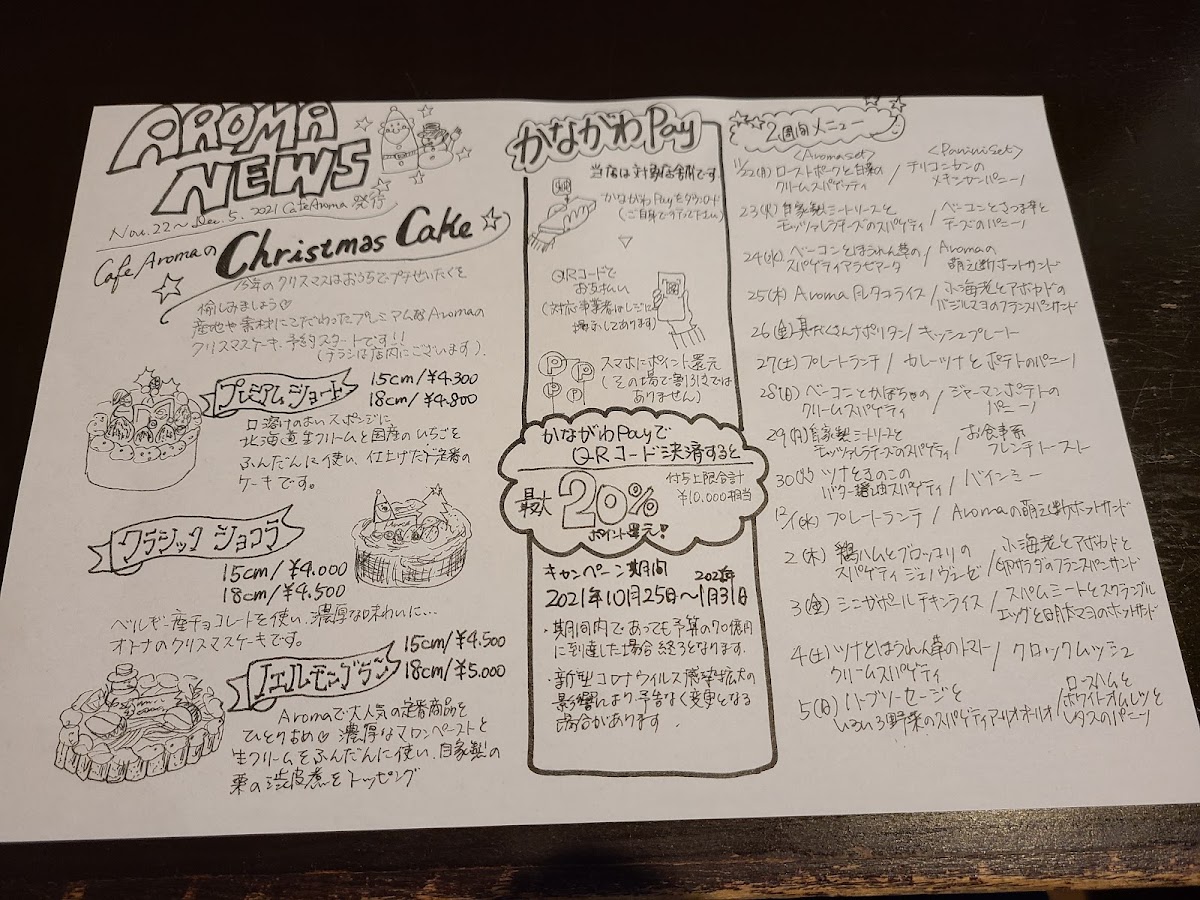 AROMA
NEWS
Nov.22〜Dec.5.2021 CafeAroma 発行
Cafe Aromaの Christmas Cake
今年のクリスマスはおうちでプチぜいたくを
愉しみましょう♡
産地や素材にこだわったプレミアムなAromaの
クリスマスケーキ、予約スタートです!!
(チラシは店内にございます).
プレミアムショート
15cm/¥4.300
18cm/¥4.800
口溶けのよいスポンジに
北海道生クリームと国産のいちごを
ふんだんに使い、仕上げた定番の
ケーキです。
クラシック ショコラ
15cm/¥4.000
18cm/¥4.500
ベルギー産チョコレートを使い、濃厚な味わいに…
オトナのクリスマスケーキです。
ノエルモンブラン
15cm/¥4.500
18cm/¥5.000
Aromaで大人気の定番商品を
ひとりじめ♡ 濃厚なマロンペーストと
生クリームをふんだんに使い、自家製の
栗の渋皮煮をトッピング
かながわPay
当店は対象店舗です.
かながわPayをダウンロード
(ご自身で行って下さい)
QRコードで
お支払い
(対応事業者はレジに
掲示してあります)
スマホにポイント還元
(その場で割引きでは
ありません)
かながわPayで
QRコード決済すると
最大20%
付与上限合計
¥10.000相当
ポイント還元!
キャンペーン期間
2021年10月25日〜1月31日
・期間内であっても予算の70億円
に到達した場合 終了となります.
・新型コロナウィルス感染拡大の
影響により予告なく変更となる
場合があります.
2週間メニュー
<Aromaset> <Paniniset>
11/22(月) ローストポークと白菜の
クリームスパゲティ / チリコンカンの
メキシカンパニーノ
23(火) 自家製ミートソースと
モッツァレラチーズのスパゲティ / ベーコンとさつま芋と
チーズのパニーノ
24(水) ベーコンとほうれん草の
スパゲティアラビアータ / Aromaの
萌え断ホットサンド
25(木) Aroma風タコライス / 小海老とアボカドの
バジルマヨのフランスパンサンド
26(金) 具だくさんナポリタン / キッシュプレート
27(土) プレートランチ / カレーツナとポテトのパニーノ
28(日) ベーコンとかぼちゃの
クリームスパゲティ / ジャーマンポテトの
パニーノ
29(月) 自家製ミートソースと
モッツァレラチーズのスパゲティ / お食事系
フレンチトースト
30(火) ツナときのこの
バター醤油スパゲティ / バインミー
12/1(水) プレートランチ / Aromaの萌え断ホットサンド
2(木) 鶏ハムとブロッコリの
スパゲティ ジェノヴェーゼ / 小海老とアボカドと
卵サラダのフランスパンサンド
3(金) シンガポールチキンライス / スパムミートとスクランブル
エッグと明太マヨのホットサンド
4(土) ツナとほうれん草のトマト
クリームスパゲティ / クロックムッシュ
5(日) ハーブソーセージと
いろいろ野菜のスパゲティアーリオオーリオ / ロースハムと
ホワイトオムレツと
レタスのパニーノ